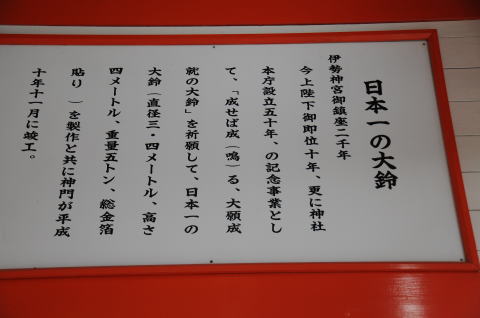 日本一の大鈴
伊勢神宮御鎮座二千年
今上陛下御即位十年、更に神社
本庁設立五十年、の記念事業とし
て、「成せば成（鳴）る、大願成
就の大鈴」を祈願して、日本一の
大鈴（直径三・四メートル、高さ
四メートル、重量五トン、総金箔
貼り　）を製作と共に神門が平成
十年十一月に竣工。